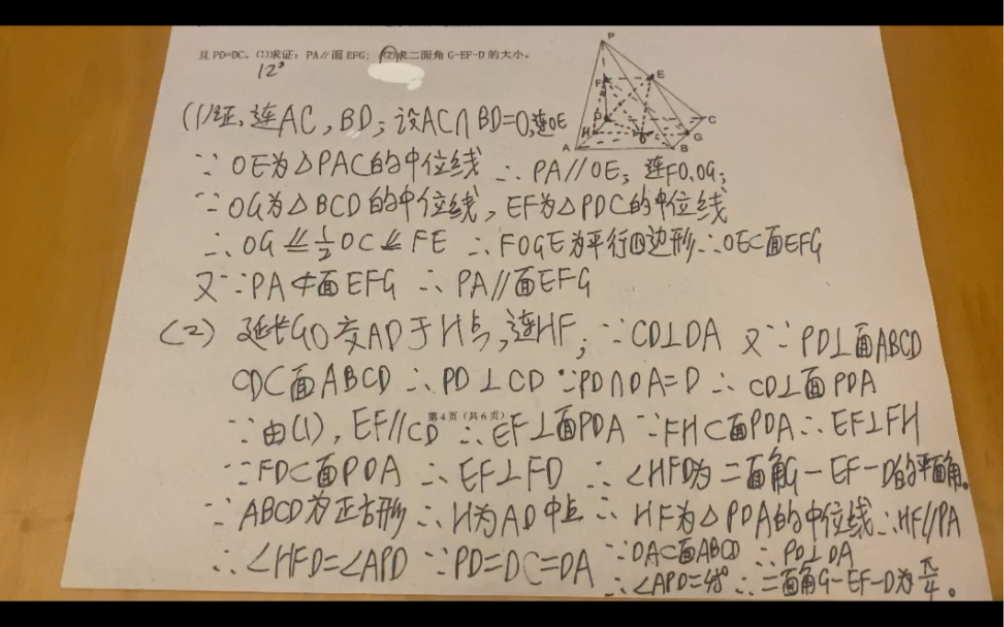 且 PD=DC。(1)求证：PA∥面 EFG；(2)求二面角 G-EF-D 的大小。
12'
P
F
E
D
C
H
O
G
A
B
(1)证，连AC，BD；设AC∩BD=O，连OE
∵OE为△PAC的中位线 ∴PA//OE；连FO，OG；
∵OG为△BCD的中位线，EF为△PDC的中位线
∴OG⫽1/2DC⫽FE ∴FOGE为平行四边形∴OE⊂面EFG
又∵PA⊄面EFG ∴PA//面EFG
(2) 延长GO交AD于H点，连HF；∵CD⊥DA 又∵PD⊥面ABCD
CD⊂面ABCD ∴PD⊥CD ∵PD∩DA=D ∴CD⊥面PDA
第 4 页（共 6 页）
∵由(1)，EF//CD ∴EF⊥面PDA ∵FH⊂面PDA∴EF⊥FH
∵FD⊂面PDA ∴EF⊥FD ∴∠HFD为二面角G-EF-D的平面角。
∵ABCD为正方形∴H为AD中点∴HF为△PDA的中位线∴HF//PA
∴∠HFD=∠APD ∵PD=DC=DA ∵DA⊂面ABCD ∴PD⊥DA
∴∠APD=45° ∴二面角G-EF-D为π/4。